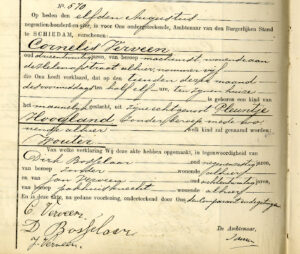 No. 570
Op heden den elfden Augustus
negentien-honderd-en-vier, is voor Ons ondergeteekende, Ambtenaar van den Burgerlijken Stand
te SCHIEDAM, verschenen:
Cornelis Verveen
oud jaren, van beroep machinist, wonende aan
alhier, nummer vijf
die Ons heeft verklaard, dat op den tienden dezer maand
des voormiddags te half elf ure, ten zijnen huize
is geboren een kind van
het mannelijk geslacht, uit zijne echtgenoot Pleuntje
Hoogland zonder beroep mede wo-
nende alhier
welk kind zal genaamd worden:
Wouter
Van welke verklaring Wij deze akte hebben opgemaakt, in tegenwoordigheid van
Dirk Bosselaar oud jaren,
van beroep wonende alhier
en van Jan Verveen oud jaren,
van beroep pakhuisknecht wonende alhier
En is deze akte, na gedane voorlezing, onderteekend door Ons
C. Verveen
D. Bosselaar
J. Verveen
De Ambtenaar,